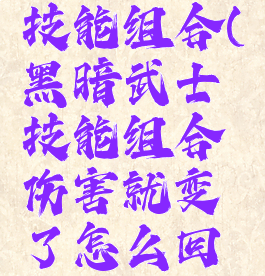 技能组合(
黑暗武士
技能组合
伤害就变
了怎么回